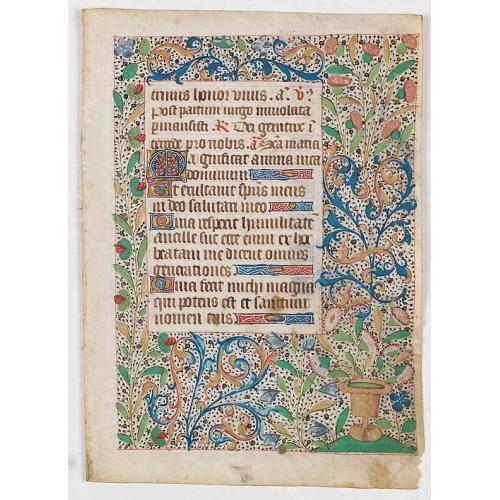 trinus honor unus. a. V.
Post partum virgo inviolata
permansisti. R Dei genitrix i
tercede pro nobis. a Sca maria
Magnificat anima mea
Dominum
Et exultavit spus meus
in deo salutari meo
Quia respexit humilitate
ancille sue ecce enim ex hoc
beatam me dicent omnes
generationes
Quia fecit michi magna
qui potens est et sanctum
nomen eius